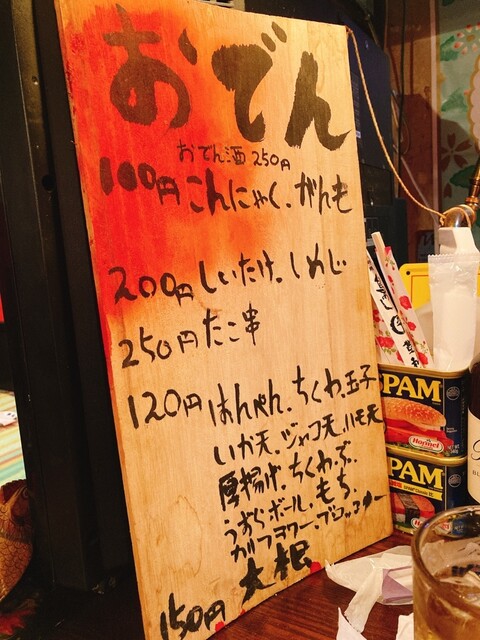 おでん
おでん酒 250円
100円 こんにゃく、がんも
200円 しいたけ、しめじ
250円 たこ串
120円 はんぺん、ちくわ、玉子
いか天、ジャコ天、ハモ天
厚揚げ、ちくわぶ、
ボール、もち、
カリフラワー、ブロッコリー
150円 大根
SPAM
Hormel
SPAM